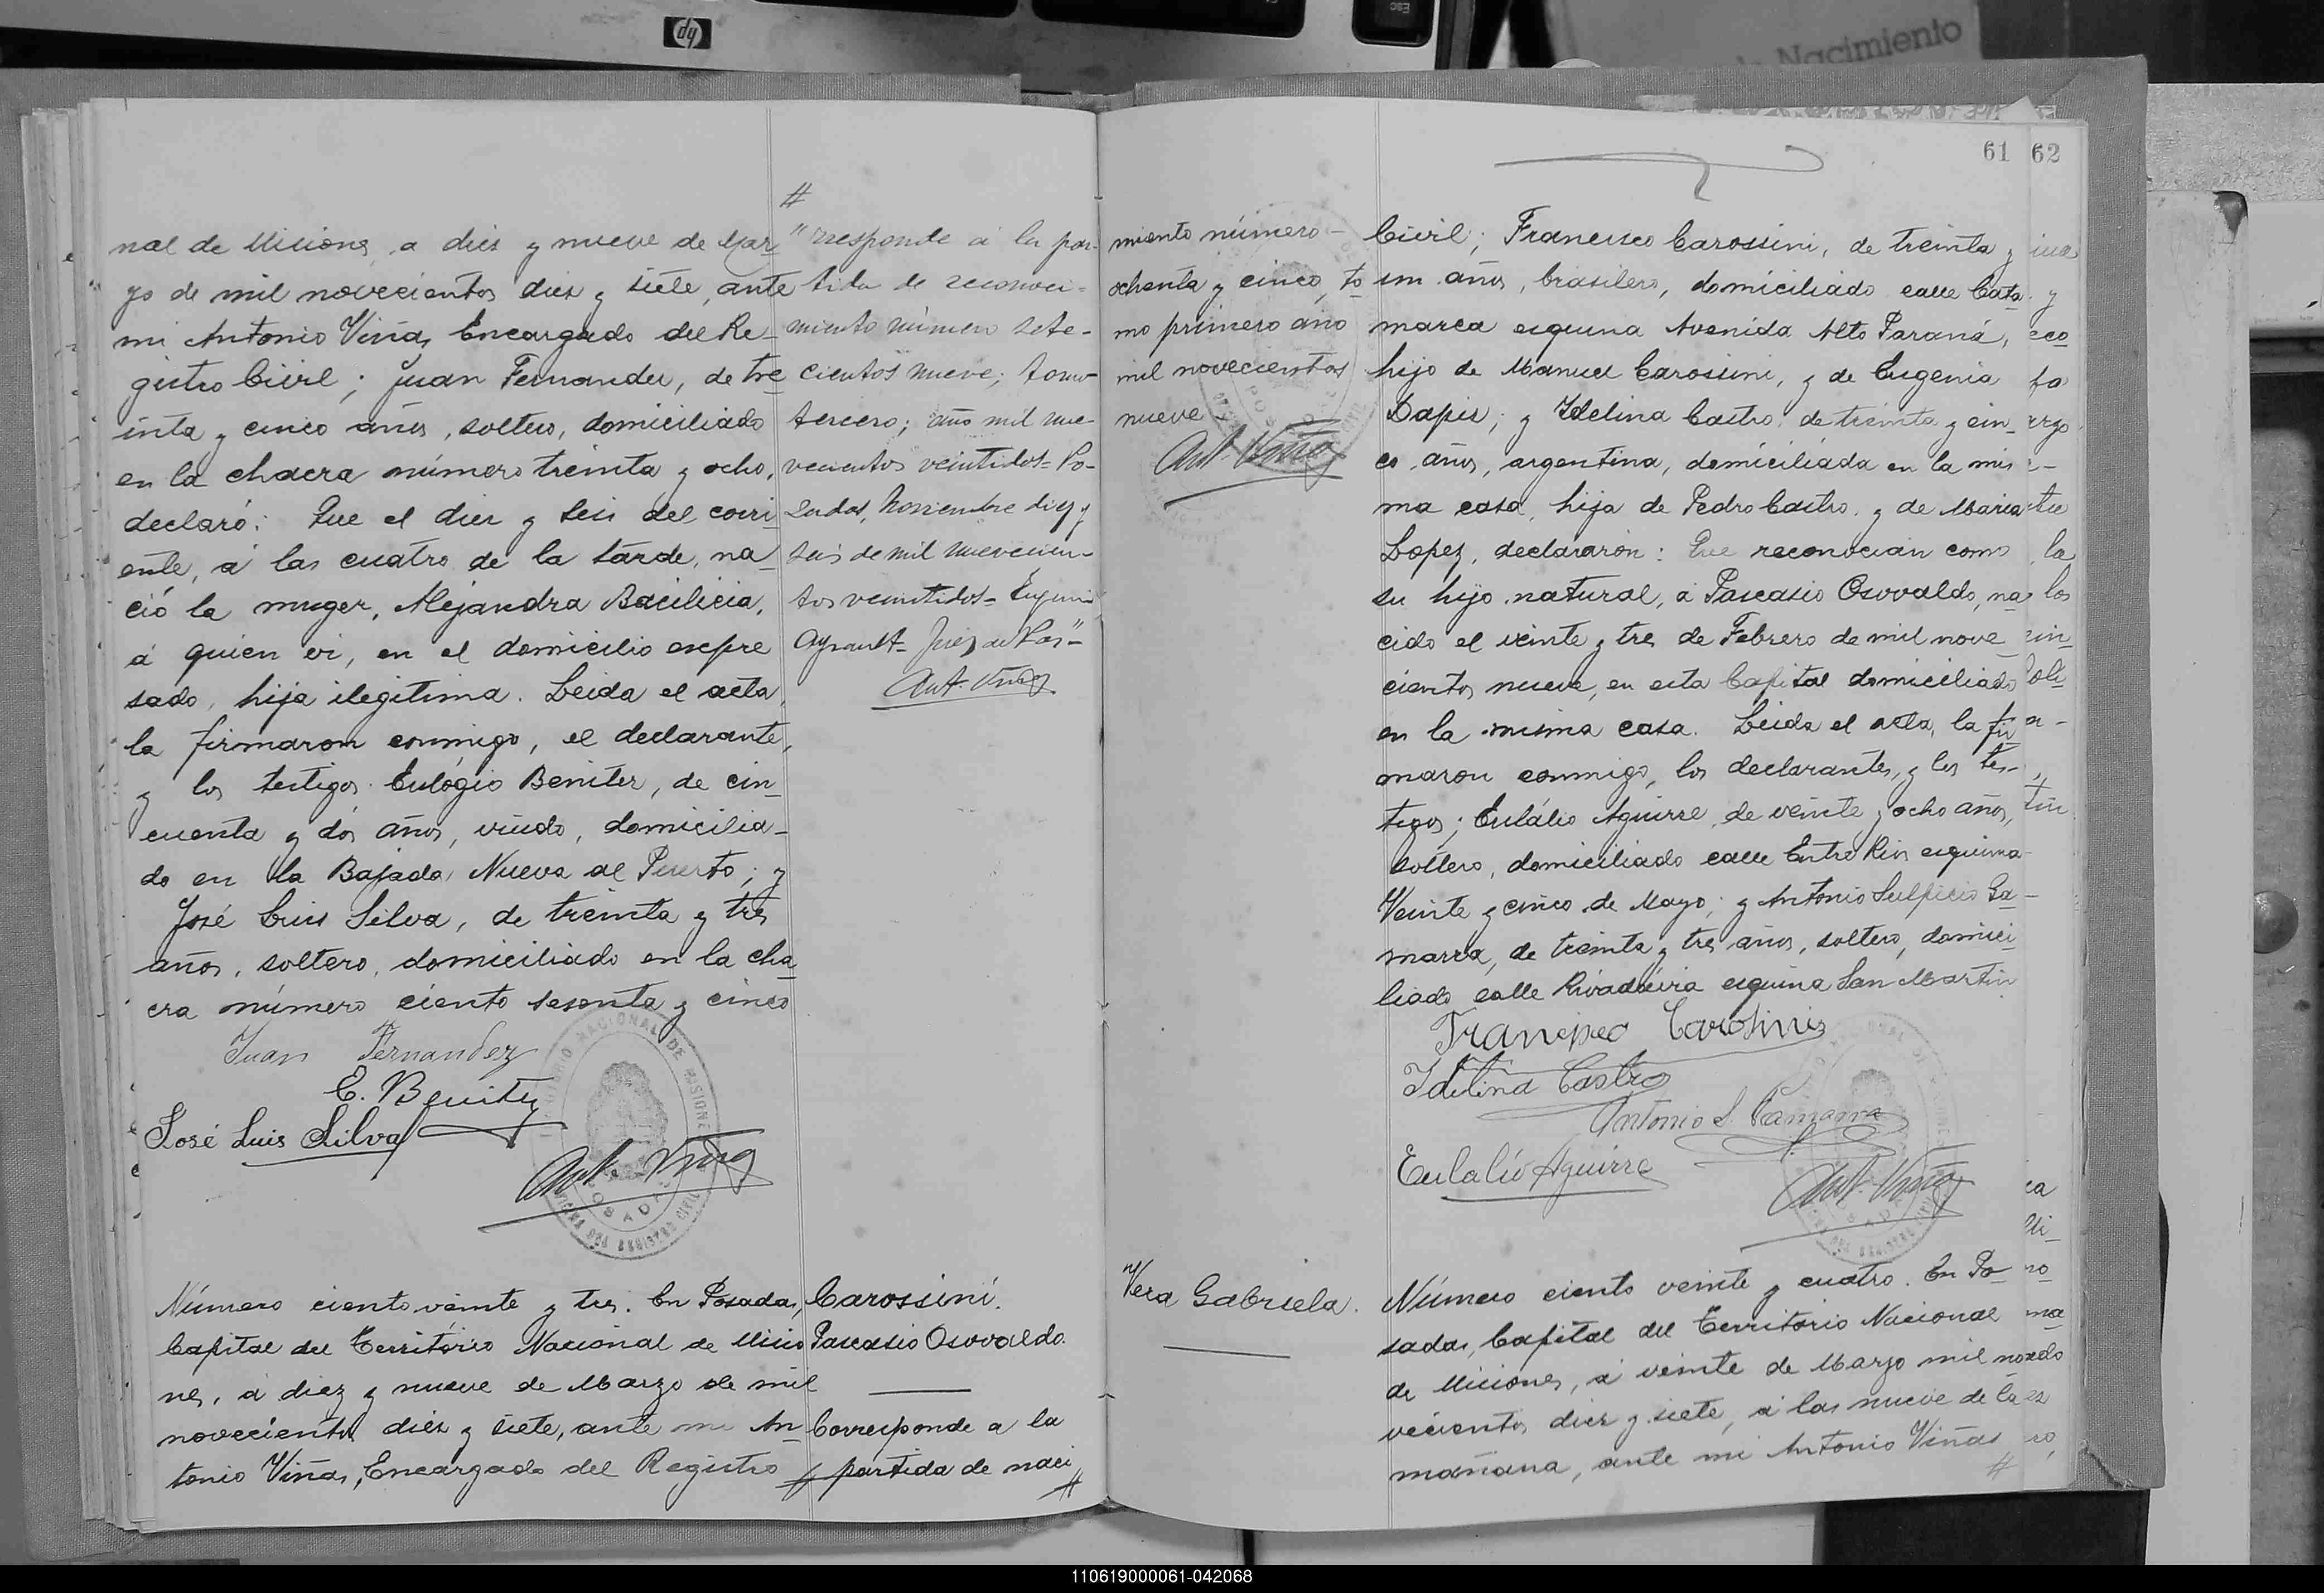 hp
ESC
Nacimiento
nal de Misiones, a diez y nueve de Mar
zo de mil novecientos diez y siete, ante
mi Antonio Viñas, Encargado del Re-
gistro Civil; Juan Fernandez, de tre
inta y cinco años, soltero, domiciliado
en la chacra número treinta y ocho,
declaró: Que el diez y seis del corri
ente, á las cuatro de la tarde, na
ció la muger, Alejandra Bacilicia,
á quien vi, en el domicilio expre
sado, hija ilegitima. Leida el acta,
la firmaron conmigo, el declarante,
y los testigos Eulógio Benitez, de cin_
cuenta y dos años, viudo, domicilia-
do en la Bajada Nueva al Puerto; y
José Luis Silva, de treinta y tres
años, soltero, domiciliado en la cha
cra número ciento sesenta y cinco
Juan Fernandez
E. Benitez
José Luis Silva
Ant. Viñas
#
"rresponde á la par-
tida de reconoci-
miento número sete-
cientos nueve; tomo
tercero; año mil nue-
vecientos veintidos= Po-
sadas, Noviembre diez y
seis de mil nuevecien-
tos veintidos= Eugenio
Ayrault= Juez de Paz"
Ant. Viñas
Número ciento veinte y tres. En Posadas,
Capital del Territorio Nacional de Misio
nes, á diez y nueve de Marzo de mil
novecientos diez y siete, ante mi An_
tonio Viñas, Encargado del Registro
Carossini.
Pascasio Osovaldo.
Corresponde a la
# partida de naci
#
61 62
miento número-
ochenta y cinco, to
mo primero año
mil novecientos
nueve
Ant. Viñas
Civil; Francisco Carossini, de treinta y
un años, brasilero, domiciliado calle Cata
marca esquina Avenida Alto Paraná,
hijo de Manuel Carossini, y de Eugenia
Dapis; y Idelina Castro, de treinta y cin_
co años, argentina, domiciliada en la mis
ma casa, hija de Pedro Castro y de Maria
Lopez, declararon: Que reconocian como
su hijo natural, á Pascasio Osovaldo, na
cido el veinte y tres de Febrero de mil nove
cientos nueve, en esta Capital domiciliado
en la misma casa. Leida el acta, la fir
maron conmigo, los declarantes, y los tes-
tigos; Eulálio Aguirre, de veinte y ocho años,
soltero, domiciliado calle Entre Rios esquina
Veinte y cinco de Mayo; y Antonio Sulpicio Ga-
marra, de treinta y tres años, soltero, domici
liado calle Rivadavia esquina San Martin
Francisco Carosinis
Idelina Castro
Antonio S. Gamarra
Eulalio Aguirre
Ant. Viñas
Vera Gabriela.
Número ciento veinte y cuatro. En Po
sadas, Capital del Territorio Nacional
de Misiones, á veinte de Marzo mil no
vecientos diez y siete, á las nueve de la
mañana, ante mi Antonio Viñas
#
110619000061-042068